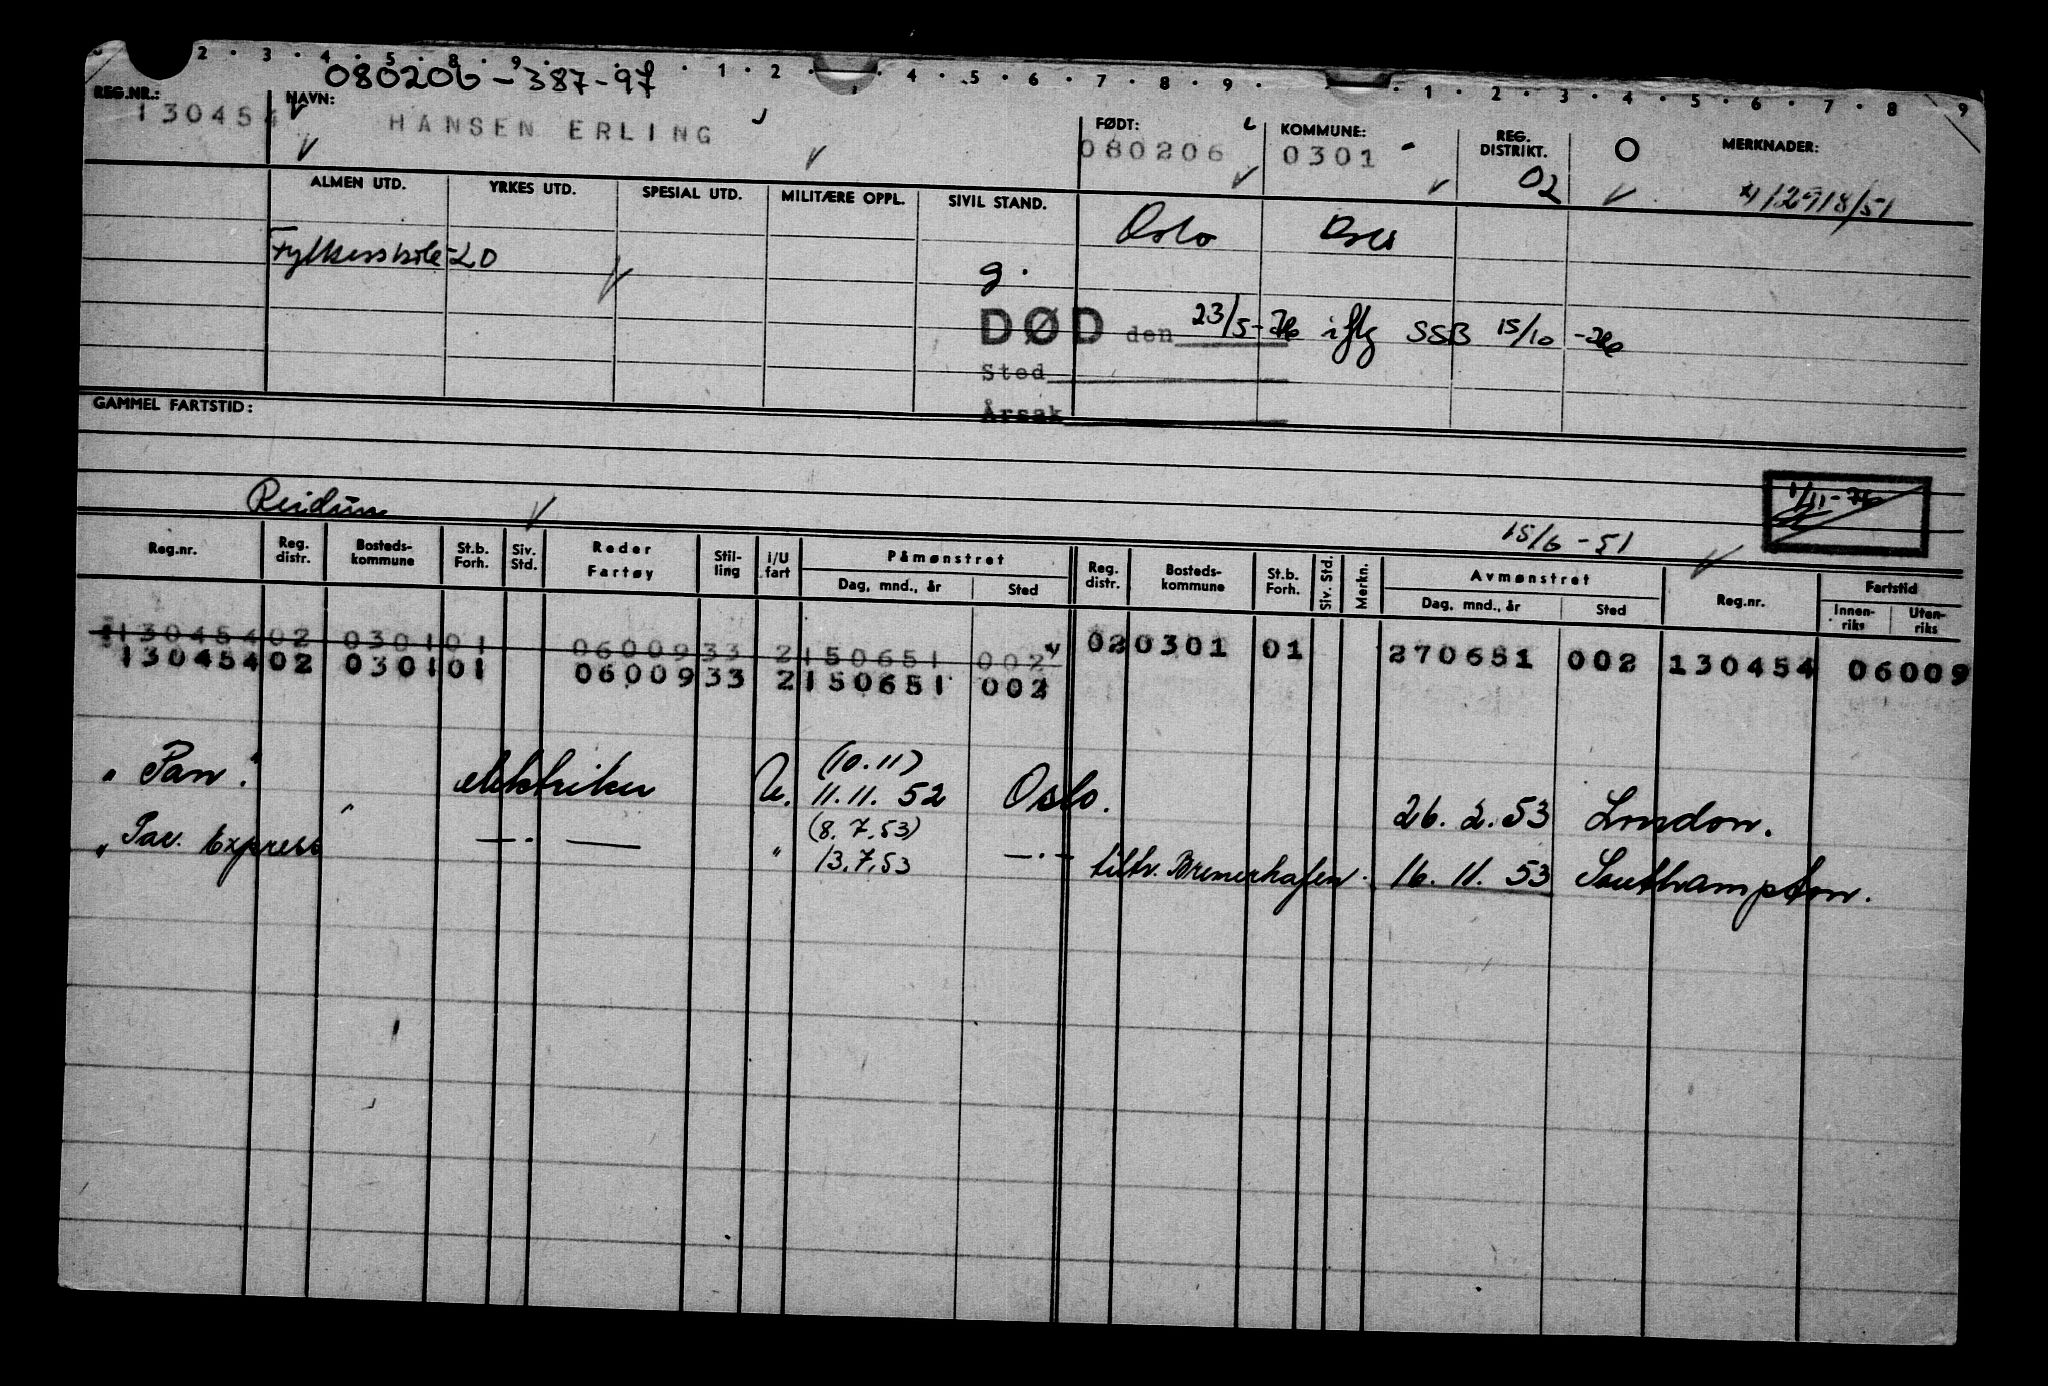 2 · 3 · 4 · 5 · 8 · 9 · · 1 · 2 · · 4 · 5 · 6 · 7 · 8 · 9 · · 1 · 2 · 3 · 4 · 5 · 6 · 7 · 8 9
080206-387-97
REG.NR.: NAVN: FØDT: KOMMUNE: REG. DISTRIKT. O MERKNADER:
130454 HANSEN ERLING 080206 0301 02
ALMEN UTD. YRKES UTD. SPESIAL UTD. MILITÆRE OPPL. SIVIL STAND.
Oslo Oslo
Fylkesskole-LD g.
DØD den 23/5-76 iflg SSB 15/10-76
Sted
Årsak
GAMMEL FARTSTID:
1/11-76
Reidun 15/6-51
Reg.nr. Reg. distr. Bosteds-kommune St.b. Forh. Siv. Std. Reder Fartøy Stil-ling i/U fart Påmønstret Reg. distr. Bosteds-kommune St.b. Forh. Siv. Std. Merkn. Avmønstret Reg.nr. Fartstid
Dag, mnd., år Sted Dag, mnd., år Sted Innen-riks Uten-riks
130454 02 0301 01 06009 33 2 150651 002 02 0301 01 270651 002 130454 06009
130454 02 0301 01 06009 33 2 150651 002
(10.11)
"Pan". elektriker U. 11.11.52 Oslo. 26.2.53 London.
(8.7.53)
" Pac. Express —·— " 13.7.53 —·— tiltr. Bremerhafen. 16.11.53 Southampton.